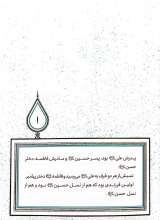 ۱
پدرش علی بود، پسر حسین و مادرش فاطمه، دختر
حسن.
نسبش از هر دو طرف به علی می‌رسید و فاطمه دختر پیامبر.
اولین فرزندی بود که هم از نسل حسین بود و هم از
نسل حسن.